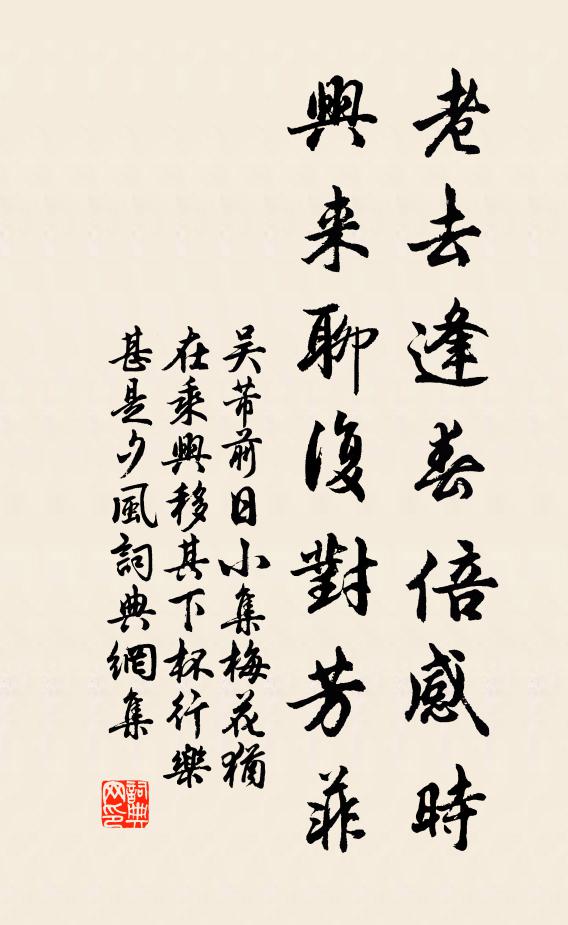 老去逢春倍感時
興来聊復對芳菲
吴芾前日小集梅花猶
在乘興移其下杯行樂
甚是夕風詞典網集
詞典网印